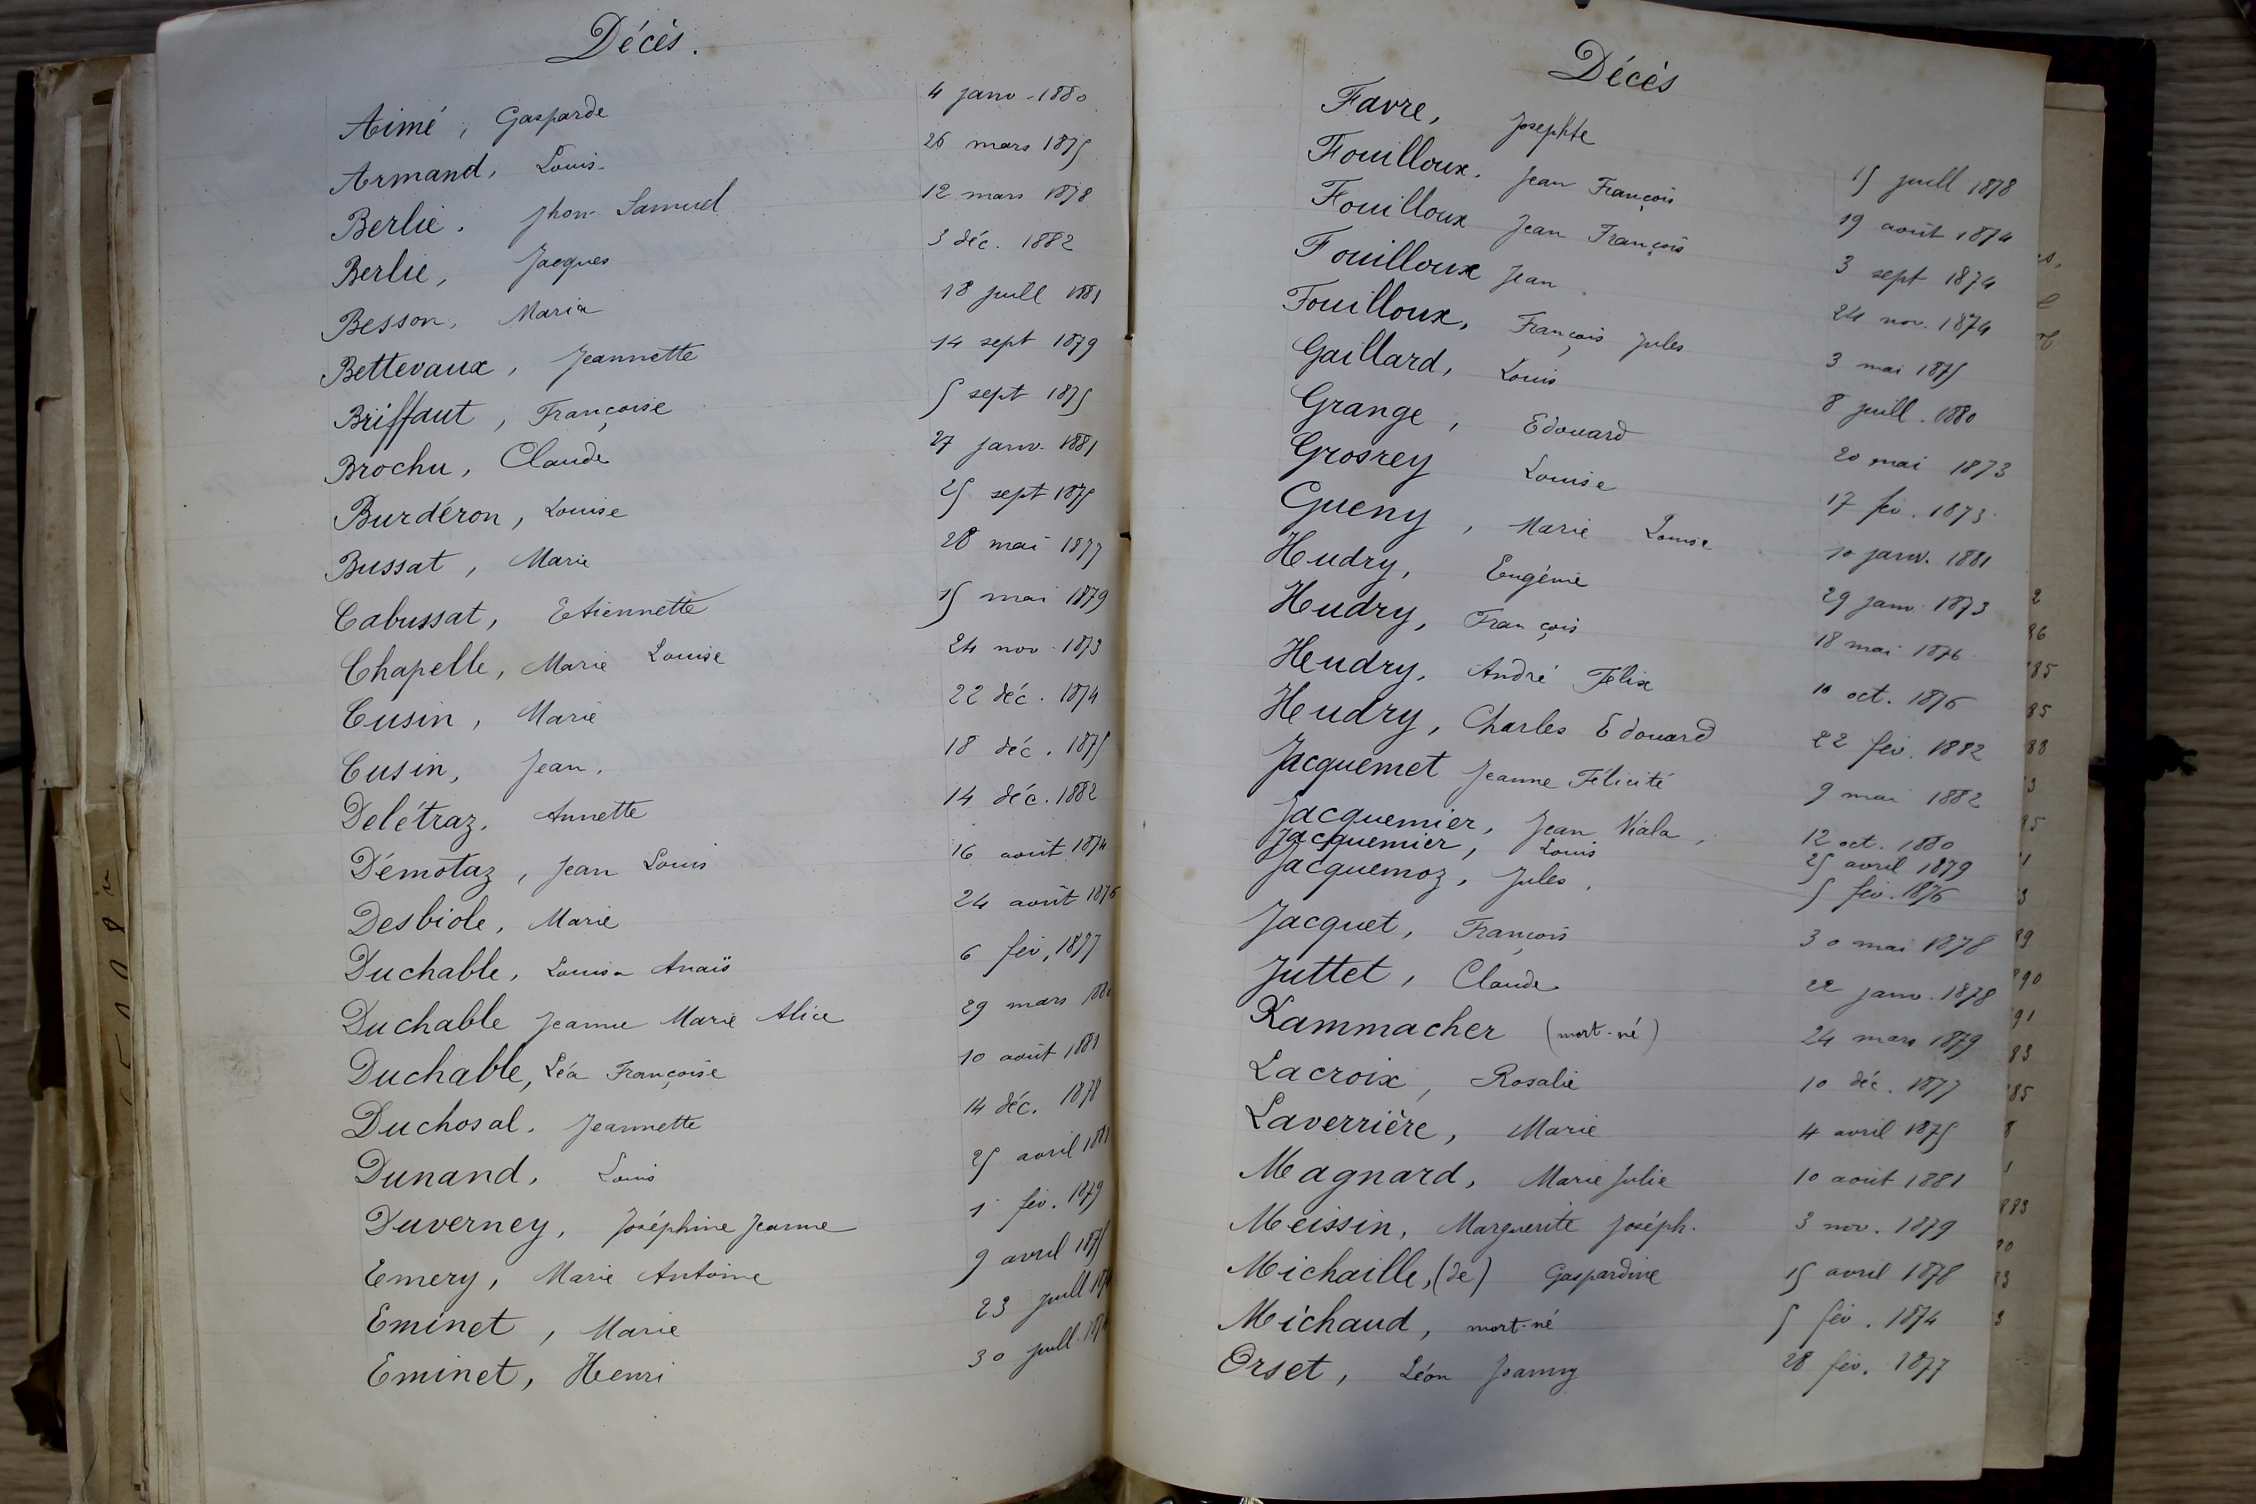 Décès.
Aimé, Gasparde 4 janv. 1880
Armand, Louis 26 mars 1875
Berlie. Jhon Samuel 12 mars 1878
Berlie, Jacques 3 déc. 1882
Besson, Maria 18 juill 1881
Bettevaux, Jeannette 14 sept 1879
Briffaut, Françoise 5 sept 1875
Brochu, Claude 27 janv. 1881
Burdéron, Louise 25 sept 1875
Bussat, Marie 28 mai 1877
Cabussat, Etiennette 15 mai 1879
Chapelle, Marie Louise 24 nov. 1873
Cusin, Marie 22 déc. 1874
Cusin, Jean. 18 déc. 1875
Delétraz. Annette 14 déc. 1882
Démotaz, Jean Louis 16 août 1874
Desbiole, Marie 24 août 1876
Duchable, Louisa Anaïs 6 fév. 1877
Duchable Jeanne Marie Alice 29 mars
Duchable, Léa Françoise 10 août 1881
Duchosal. Jeannette 14 déc. 1878
Dunand, Louis 25 avril 1881
Duverney, Joséphine Jeanne 1 fév. 1879
Emery, Marie Antoine 9 avril 1875
Eminet, Marie 23 juill
Eminet, Henri 30 juill.
Décès
Favre, Josephte 15 juill 1878
Fouilloux. Jean François 19 août 1874
Fouilloux Jean François 3 sept 1874
Fouilloux Jean 24 nov. 1874
Fouilloux, François Jules 3 mai 1875
Gaillard, Louis 8 juill. 1880
Grange, Edouard 20 mai 1873
Grosrey Louise 17 fév. 1873
Gueny, Marie Louise 10 janv. 1881
Hudry, Eugénie 29 janv. 1873
Hudry, François 18 mai 1876
Hudry, André Félix 10 oct. 1876
Hudry, Charles Edouard 22 fév. 1882
Jacquemet Jeanne Félicité 9 mai 1882
Jacquemier, Jean Viala, 12 oct. 1880
Jacquemier, Louis 25 avril 1879
Jacquemoz, Jules. 5 fév. 1876
Jacquet, François 30 mai 1878
Juttet, Claude 22 janv. 1878
Kammacher (mort-né) 24 mars 1879
Lacroix, Rosalie 10 déc. 1877
Laverrière, Marie 4 avril 1875
Magnard, Marie Julie 10 août 1881
Meissin, Marguerite Joséph. 3 nov. 1879
Michaille, (de) Gaspardine 15 avril 1878
Michaud, mort-né 5 fév. 1874
Orset, Léon Joanny 28 fév. 1877